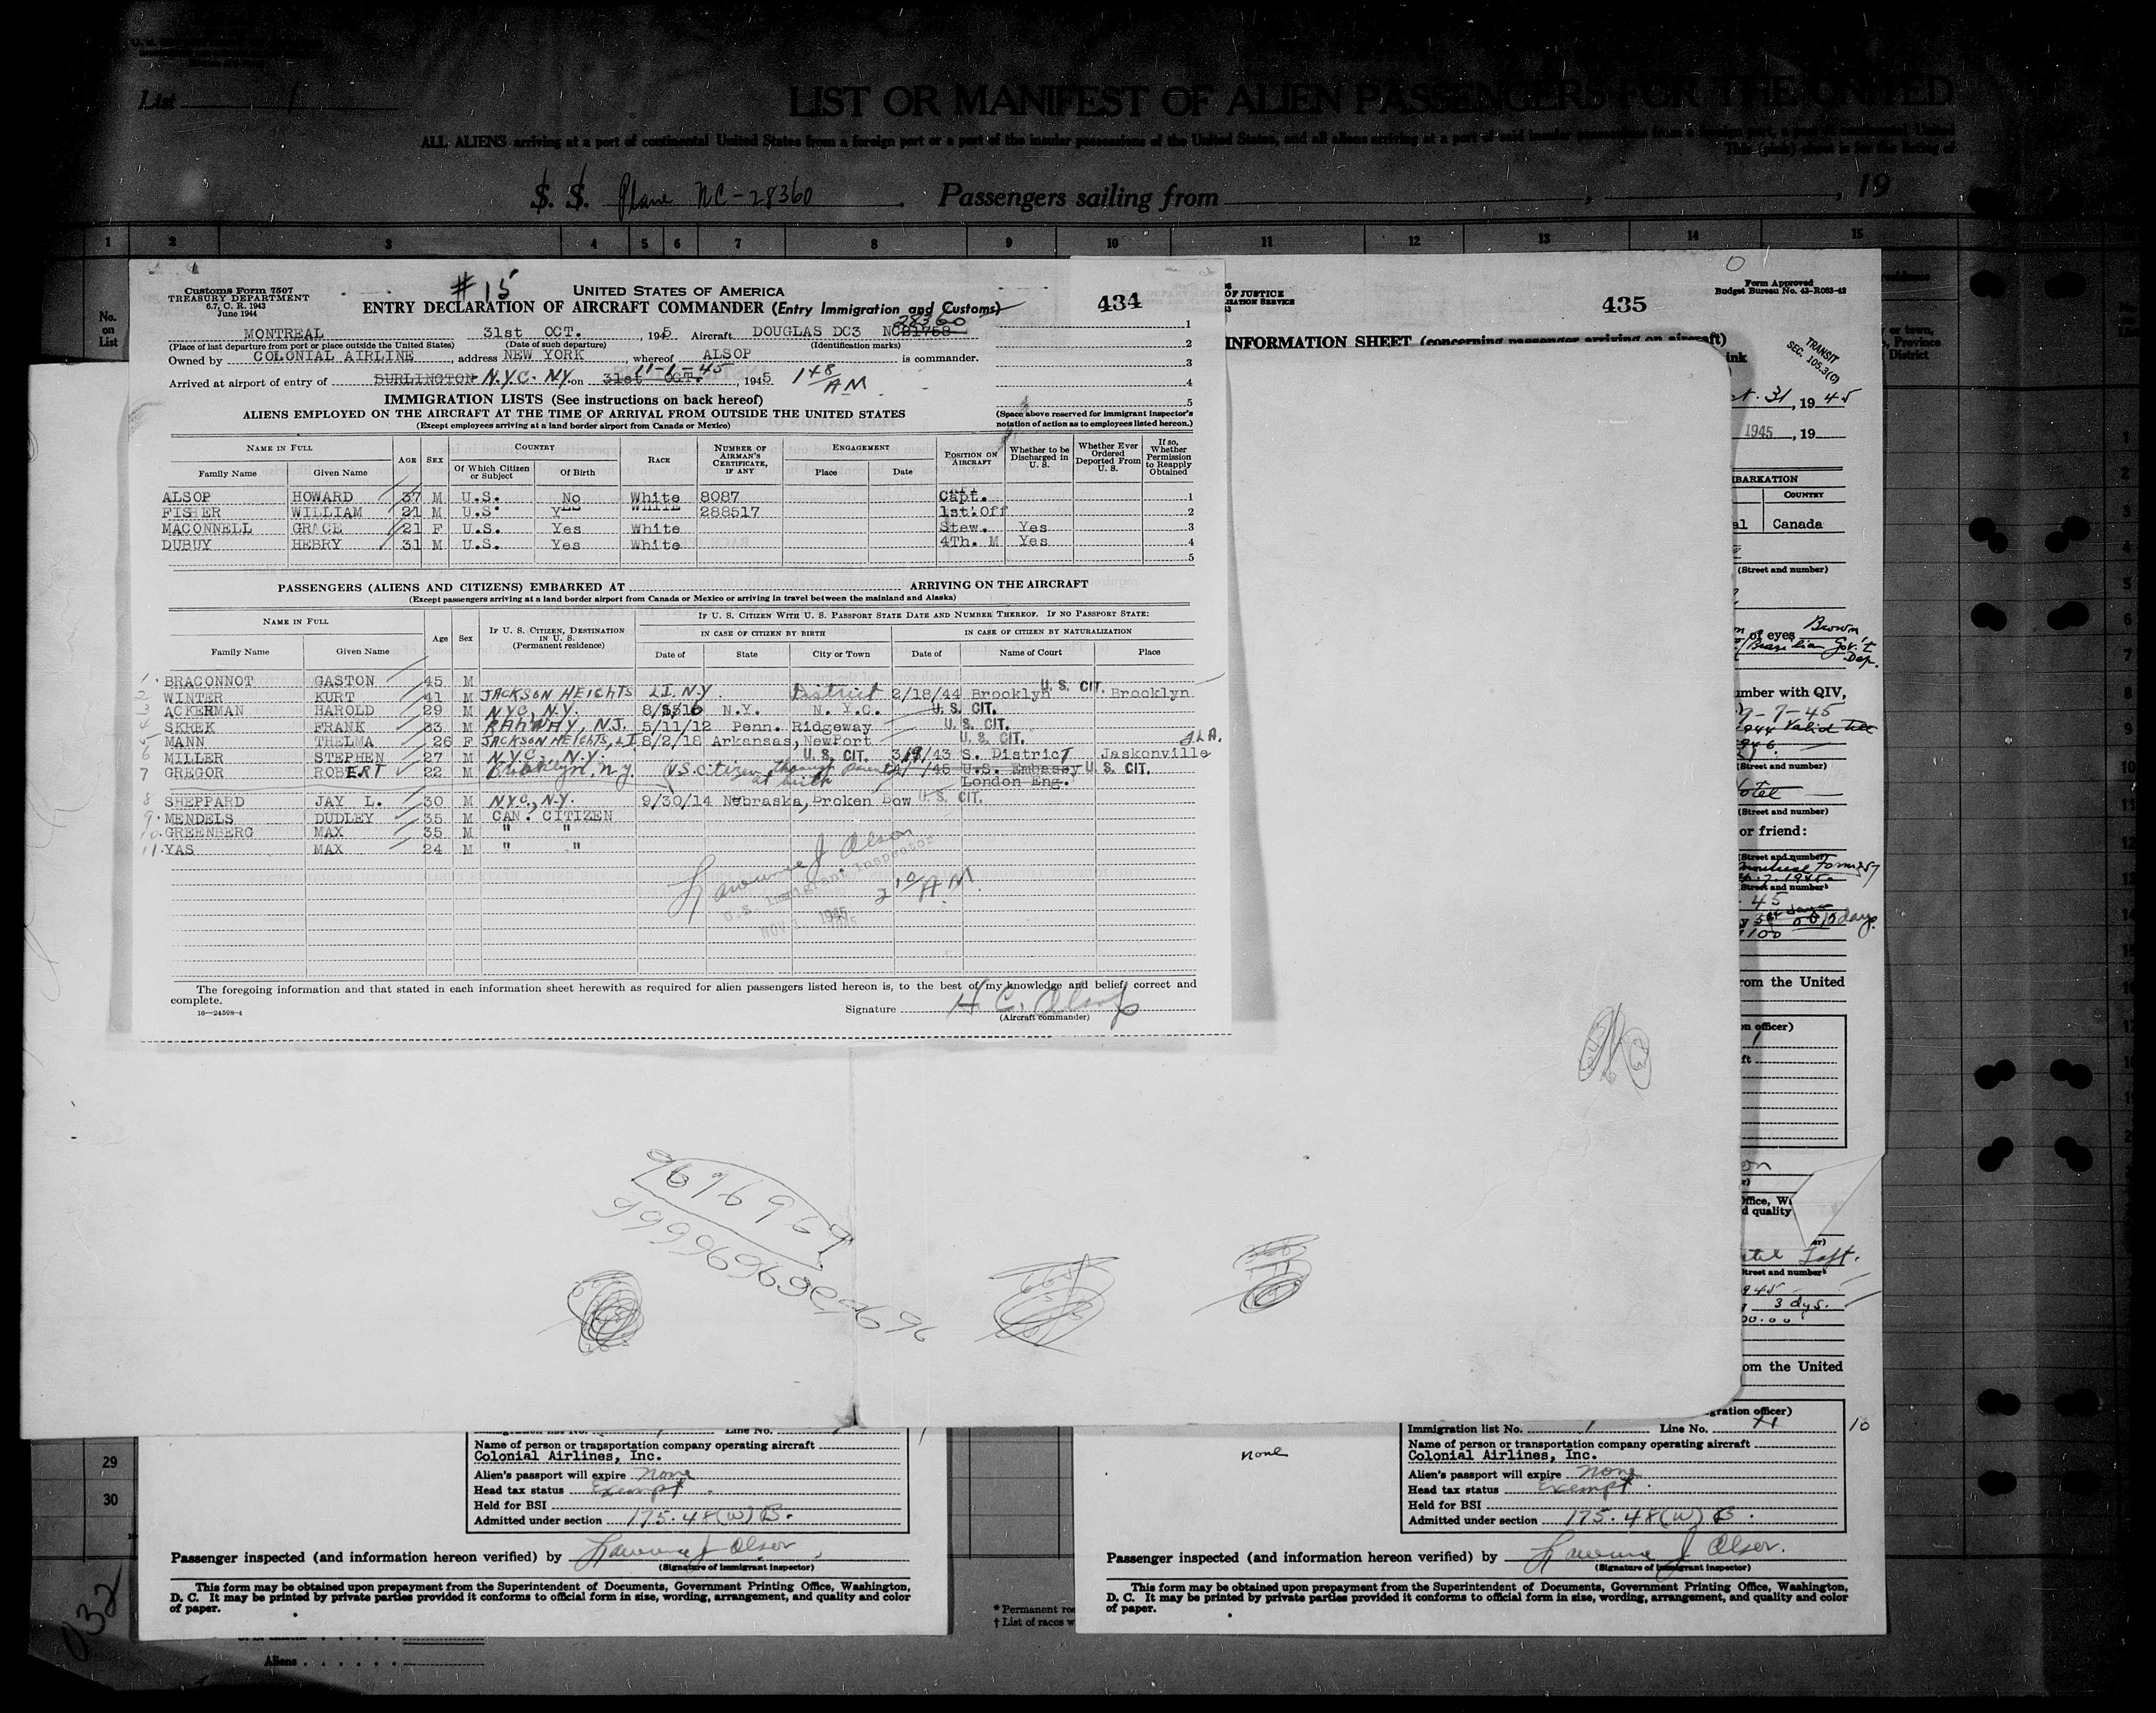 List 1
LIST OR MANIFEST OF ALIEN PASSENGERS FOR THE UNITED
ALL ALIENS arriving at a port of continental United States from a foreign port or a part of the insular possessions of the United States, and all aliens arriving at a port of said insular possessions from a foreign port, a port of continental United
This (pink) sheet is for the listing of
S. S. Plane NC-28360 . Passengers sailing from , , 19
1 2 3 4 5 6 7 8 9 10 11 12 13 14 15
No. on List
Customs Form 7507
TREASURY DEPARTMENT
6.7, C. R. 1943
June 1944
#15
UNITED STATES OF AMERICA
ENTRY DECLARATION OF AIRCRAFT COMMANDER (Entry Immigration and Customs)
434
MONTREAL 31st OCT. , 1945 Aircraft DOUGLAS DC3 NC21758 28360
(Place of last departure from port or place outside the United States) (Date of such departure) (Identification marks)
Owned by COLONIAL AIRLINE , address NEW YORK , whereof ALSOP is commander.
Arrived at airport of entry of BURLINGTON N.Y.C. N.Y. on 31st OCT. 11-1-45 , 1945 148 AM
1
2
3
4
5
IMMIGRATION LISTS (See instructions on back hereof)
ALIENS EMPLOYED ON THE AIRCRAFT AT THE TIME OF ARRIVAL FROM OUTSIDE THE UNITED STATES
(Except employees arriving at a land border airport from Canada or Mexico)
(Space above reserved for immigrant inspector's notation of action as to employees listed hereon.)
NAME IN FULL AGE SEX COUNTRY RACE NUMBER OF AIRMAN'S CERTIFICATE, IF ANY ENGAGEMENT POSITION ON AIRCRAFT Whether to be Discharged in U. S. Whether Ever Ordered Deported From U. S. If so, Whether Permission to Reapply Obtained
Family Name Given Name Of Which Citizen or Subject Of Birth Place Date
ALSOP HOWARD 37 M U.S. No White 8087 Capt. 1
FISHER WILLIAM 21 M U.S. Yes White 288517 1st.Off 2
MACONNELL GRACE 21 F U.S. Yes White Stew. Yes 3
DUBUY HEBRY 31 M U.S. Yes White 4Th. M Yes 4
5
PASSENGERS (ALIENS AND CITIZENS) EMBARKED AT ARRIVING ON THE AIRCRAFT
(Except passengers arriving at a land border airport from Canada or Mexico or arriving in travel between the mainland and Alaska)
NAME IN FULL Age Sex IF U. S. CITIZEN, DESTINATION IN U. S. (Permanent residence) IF U. S. CITIZEN WITH U. S. PASSPORT STATE DATE AND NUMBER THEREOF. IF NO PASSPORT STATE:
IN CASE OF CITIZEN BY BIRTH IN CASE OF CITIZEN BY NATURALIZATION
Family Name Given Name Date of State City or Town Date of Name of Court Place
1. BRACONNOT GASTON 45 M
2 WINTER KURT 41 M JACKSON HEIGHTS L.I. N.Y. District 2/18/44 Brooklyn U. S. CIT. Brooklyn
3 ACKERMAN HAROLD 29 M N.Y.C. N.Y. N.Y. N. Y.C. U. S. CIT.
4 SKREK FRANK 33 M RAHWAY, N.J. 5/11/12 Penn. Ridgeway U. S. CIT.
5 MANN THELMA 26 F JACKSON HEIGHTS, L I 8/2/18 Arkansas, NewPort U. S. CIT.
6 MILLER STEPHEN 27 M N.Y.C. N.Y. U. S. CIT. S. District Jaskonville FLA.
7 GREGOR ROBERT 22 M Brooklyn, n.y. (U.S. citizen through parents at birth U.S. Embassy London Eng. U. S. CIT.
8 SHEPPARD JAY L. 30 M N.Y.C., N.Y. 9/30/14 Nebraska, Broken Bow U. S. CIT.
9. MENDELS DUDLEY 35 M CAN. CITIZEN
10. GREENBERG MAX 35 M " "
11. YAS MAX 24 M " "
Lawrence J Olson
U.S. Immigrant Inspector
2 10 AM
NOV 1 1945
The foregoing information and that stated in each information sheet herewith as required for alien passengers listed hereon is, to the best of my knowledge and belief, correct and complete.
16—24598-4
Signature H. C. Alsop
(Aircraft commander)
OF JUSTICE
435
Form Approved
Budget Bureau No. 43-R063-42
INFORMATION SHEET (concerning passenger arriving on aircraft)
TRANSIT
SEC. 105.3(C)
ink
31 , 19 45
1945 , 19
BARKATION
COUNTRY
Canada
(Street and number)
of eyes Brown
Brazilian Gov't Dep.
umber with QIV,
9-7-45
(Street and number)
(Street and number)
or friend:
(Street and number)
(Street and number)
rom the United
on officer)
(Street and number)
3 dys.
om the United
9696969
29
30
Line No.
Name of person or transportation company operating aircraft
Colonial Airlines, Inc.
Alien's passport will expire none
Head tax status Exempt
Held for BSI
Admitted under section 175.48(W) B.
Passenger inspected (and information hereon verified) by Lawrence J Olson
(Signature of immigrant inspector)
This form may be obtained upon prepayment from the Superintendent of Documents, Government Printing Office, Washington,
D. C. It may be printed by private parties provided it conforms to official form in size, wording, arrangement, and quality and color
of paper.
Aliens
032
* Permanent res
† List of races w
none
gration officer)
Immigration list No. 1 Line No. 11 10
Name of person or transportation company operating aircraft
Colonial Airlines, Inc.
Alien's passport will expire none
Head tax status Exempt
Held for BSI
Admitted under section 175.48(W) B.
Passenger inspected (and information hereon verified) by Lawrence J Olson.
(Signature of immigrant inspector)
This form may be obtained upon prepayment from the Superintendent of Documents, Government Printing Office, Washington,
D. C. It may be printed by private parties provided it conforms to official form in size, wording, arrangement, and quality and color
of paper.